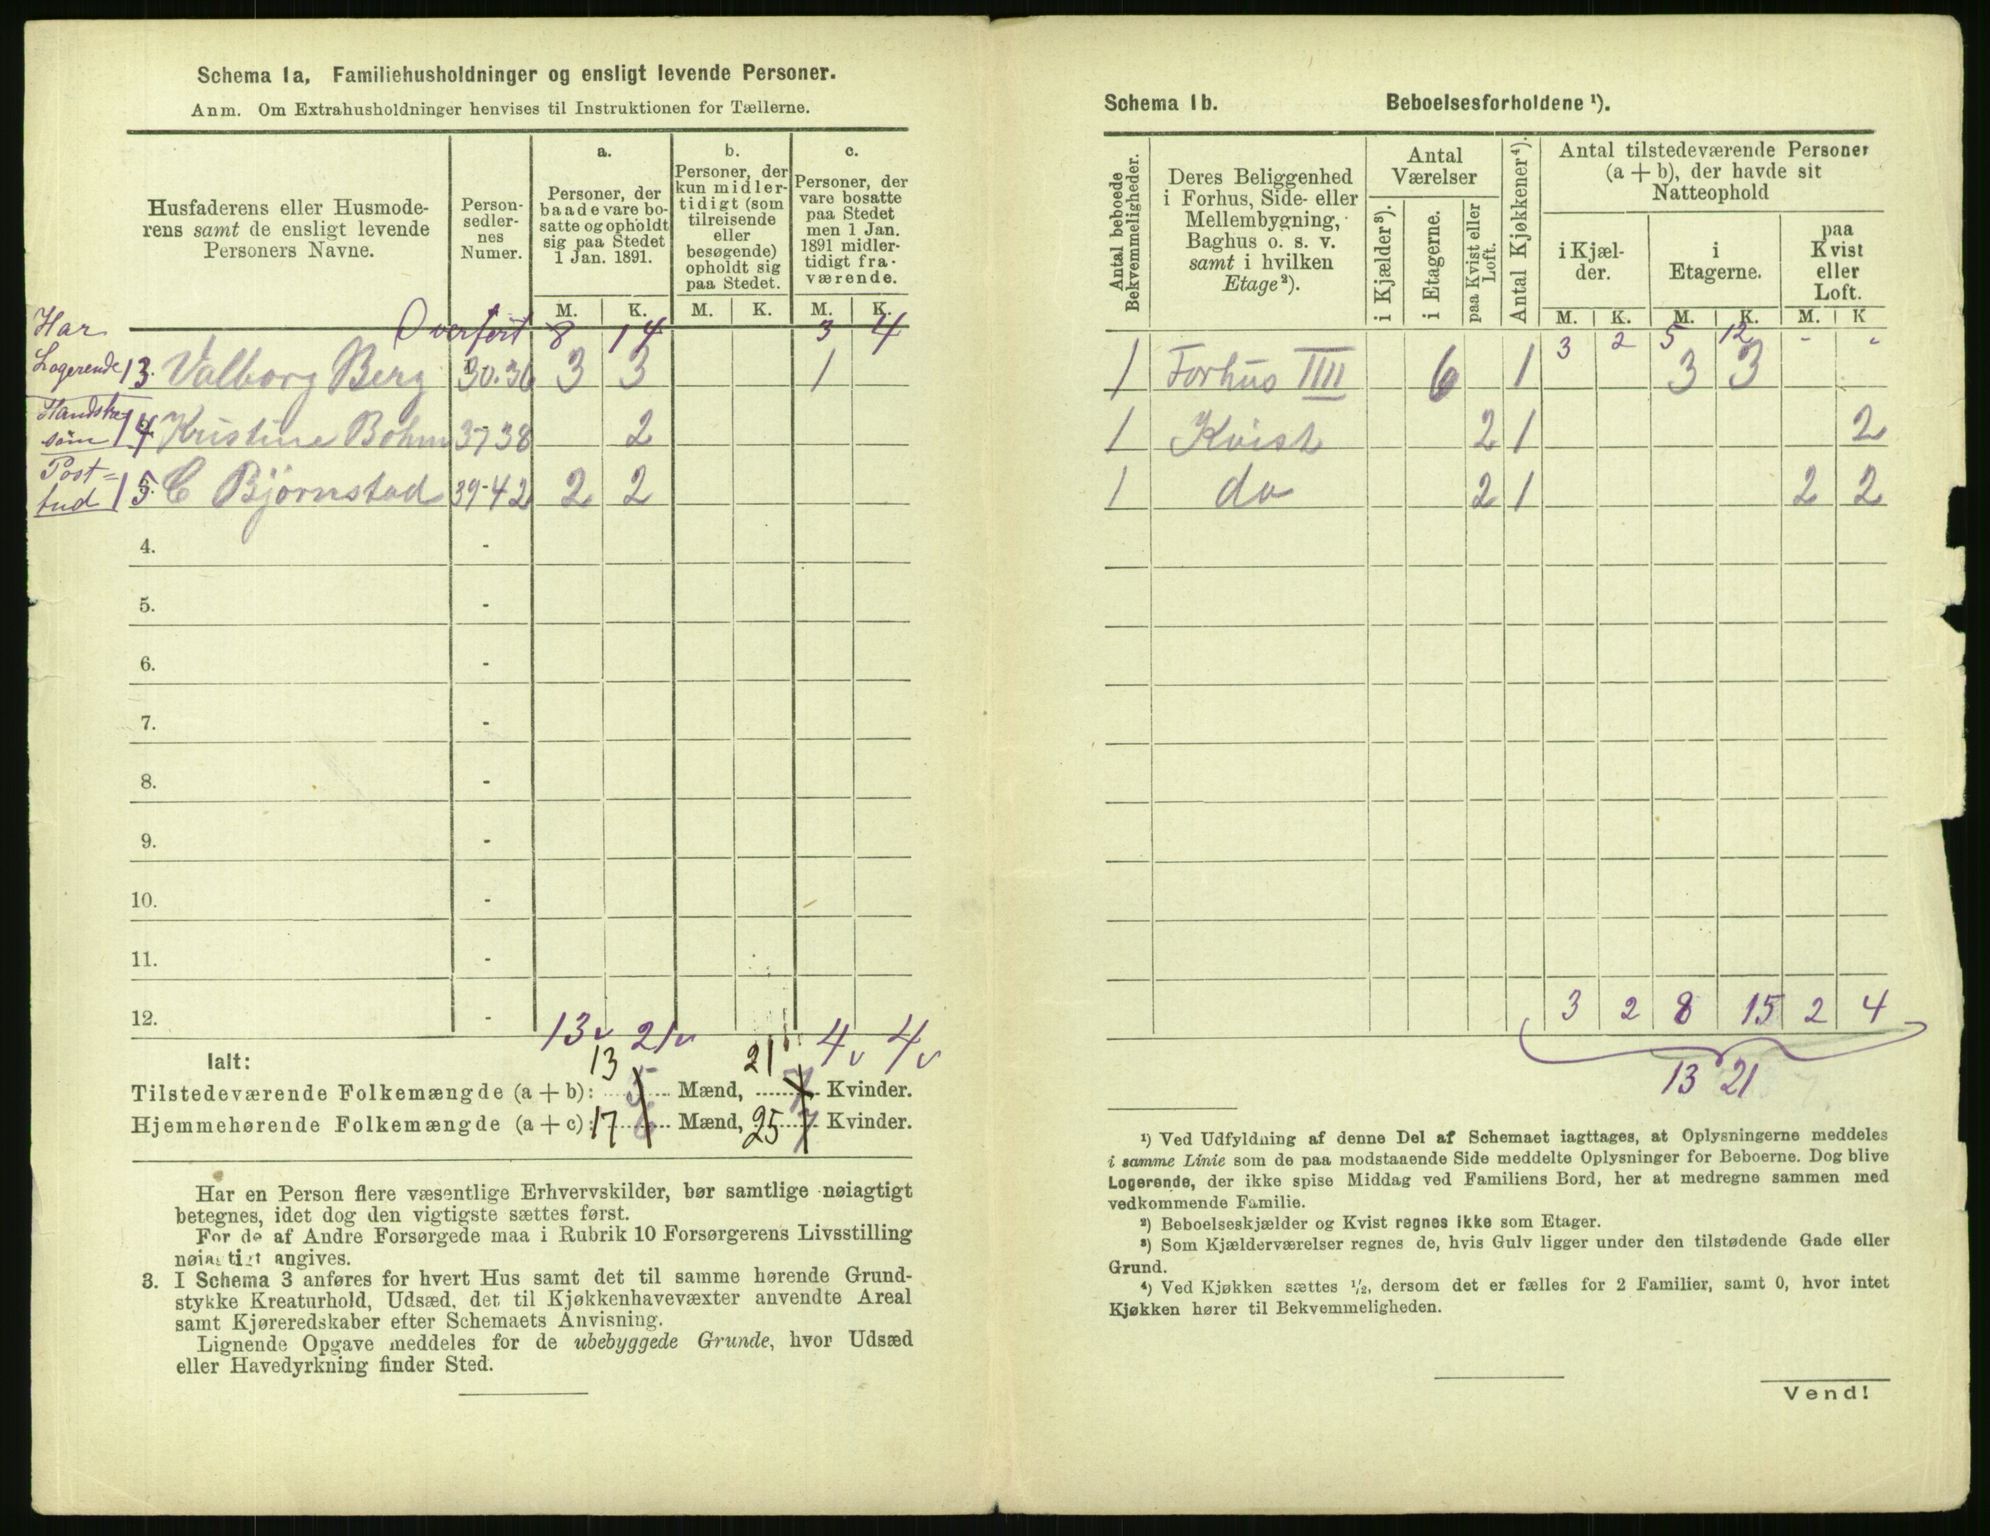 Schema 1a. Familiehusholdninger og ensligt levende Personer.
Anm. Om Extrahusholdninger henvises til Instruktionen for Tællerne.
Husfaderens eller Husmode-
rens samt de ensligt levende
Personers Navne.
Person-
sedler-
nes
Numer.
a.
Personer, der
baade vare bo-
satte og opholdt
sig paa Stedet
1 Jan. 1891.
b.
Personer, der
kun midler-
tidigt (som
tilreisende
eller
besøgende)
opholdt sig
paa Stedet.
c.
Personer, der
vare bosatte
paa Stedet
men 1 Jan.
1891 midler-
tidigt fra-
værende.
M. K. M. K. M. K.
Har Overført 8 14 3 4
Logerende 13. Valborg Berg 30-36 3 3 1
14 Kristine Bohm 37-38 2
Post=
tud 15. C Bjørnstad 39-42 2 2
4. -
5. -
6. -
7. -
8. -
9. -
10. -
11. -
12. -
13 21 4 4
Ialt:
13 21
Tilstedeværende Folkemængde (a + b): 5 Mænd, 7 Kvinder.
Hjemmehørende Folkemængde (a + c): 17 6 Mænd, 25 7 Kvinder.
Har en Person flere væsentlige Erhvervskilder, bør samtlige nøiagtigt
betegnes, idet dog den vigtigste sættes først.
For de af Andre Forsørgede maa i Rubrik 10 Forsørgerens Livsstilling
nøiagtigt angives.
3. I Schema 3 anføres for hvert Hus samt det til samme hørende Grund-
stykke Kreaturhold, Udsæd, det til Kjøkkenhavevæxter anvendte Areal
samt Kjøreredskaber efter Schemaets Anvisning.
Lignende Opgave meddeles for de ubebyggede Grunde, hvor Udsæd
eller Havedyrkning finder Sted.
Schema 1b. Beboelsesforholdene ¹).
Antal beboede
Bekvemmeligheder.
Deres Beliggenhed
i Forhus, Side- eller
Mellembygning,
Baghus o. s. v.
samt i hvilken
Etage²).
Antal
Værelser
i Kjælder³).
i Etagerne.
paa Kvist eller
Loft.
Antal Kjøkkener⁴).
Antal tilstedeværende Personer
(a + b), der havde sit
Natteophold
i Kjæl-
der.
i
Etagerne.
paa
Kvist
eller
Loft.
M. K. M. K. M. K
3 2 5 12 - -
1 Forhus IIII 6 1 3 3
1 Kvist 2 1 2
1 do 2 1 2 2
3 2 8 15 2 4
13 21
¹) Ved Udfyldning af denne Del af Schemaet iagttages, at Oplysningerne meddeles
i samme Linie som de paa modstaaende Side meddelte Oplysninger for Beboerne. Dog blive
Logerende, der ikke spise Middag ved Familiens Bord, her at medregne sammen med
vedkommende Familie.
²) Beboelseskjælder og Kvist regnes ikke som Etager.
³) Som Kjælderværelser regnes de, hvis Gulv ligger under den tilstødende Gade eller
Grund.
⁴) Ved Kjøkken sættes ¹/₂, dersom det er fælles for 2 Familier, samt 0, hvor intet
Kjøkken hører til Bekvemmeligheden.
Vend!